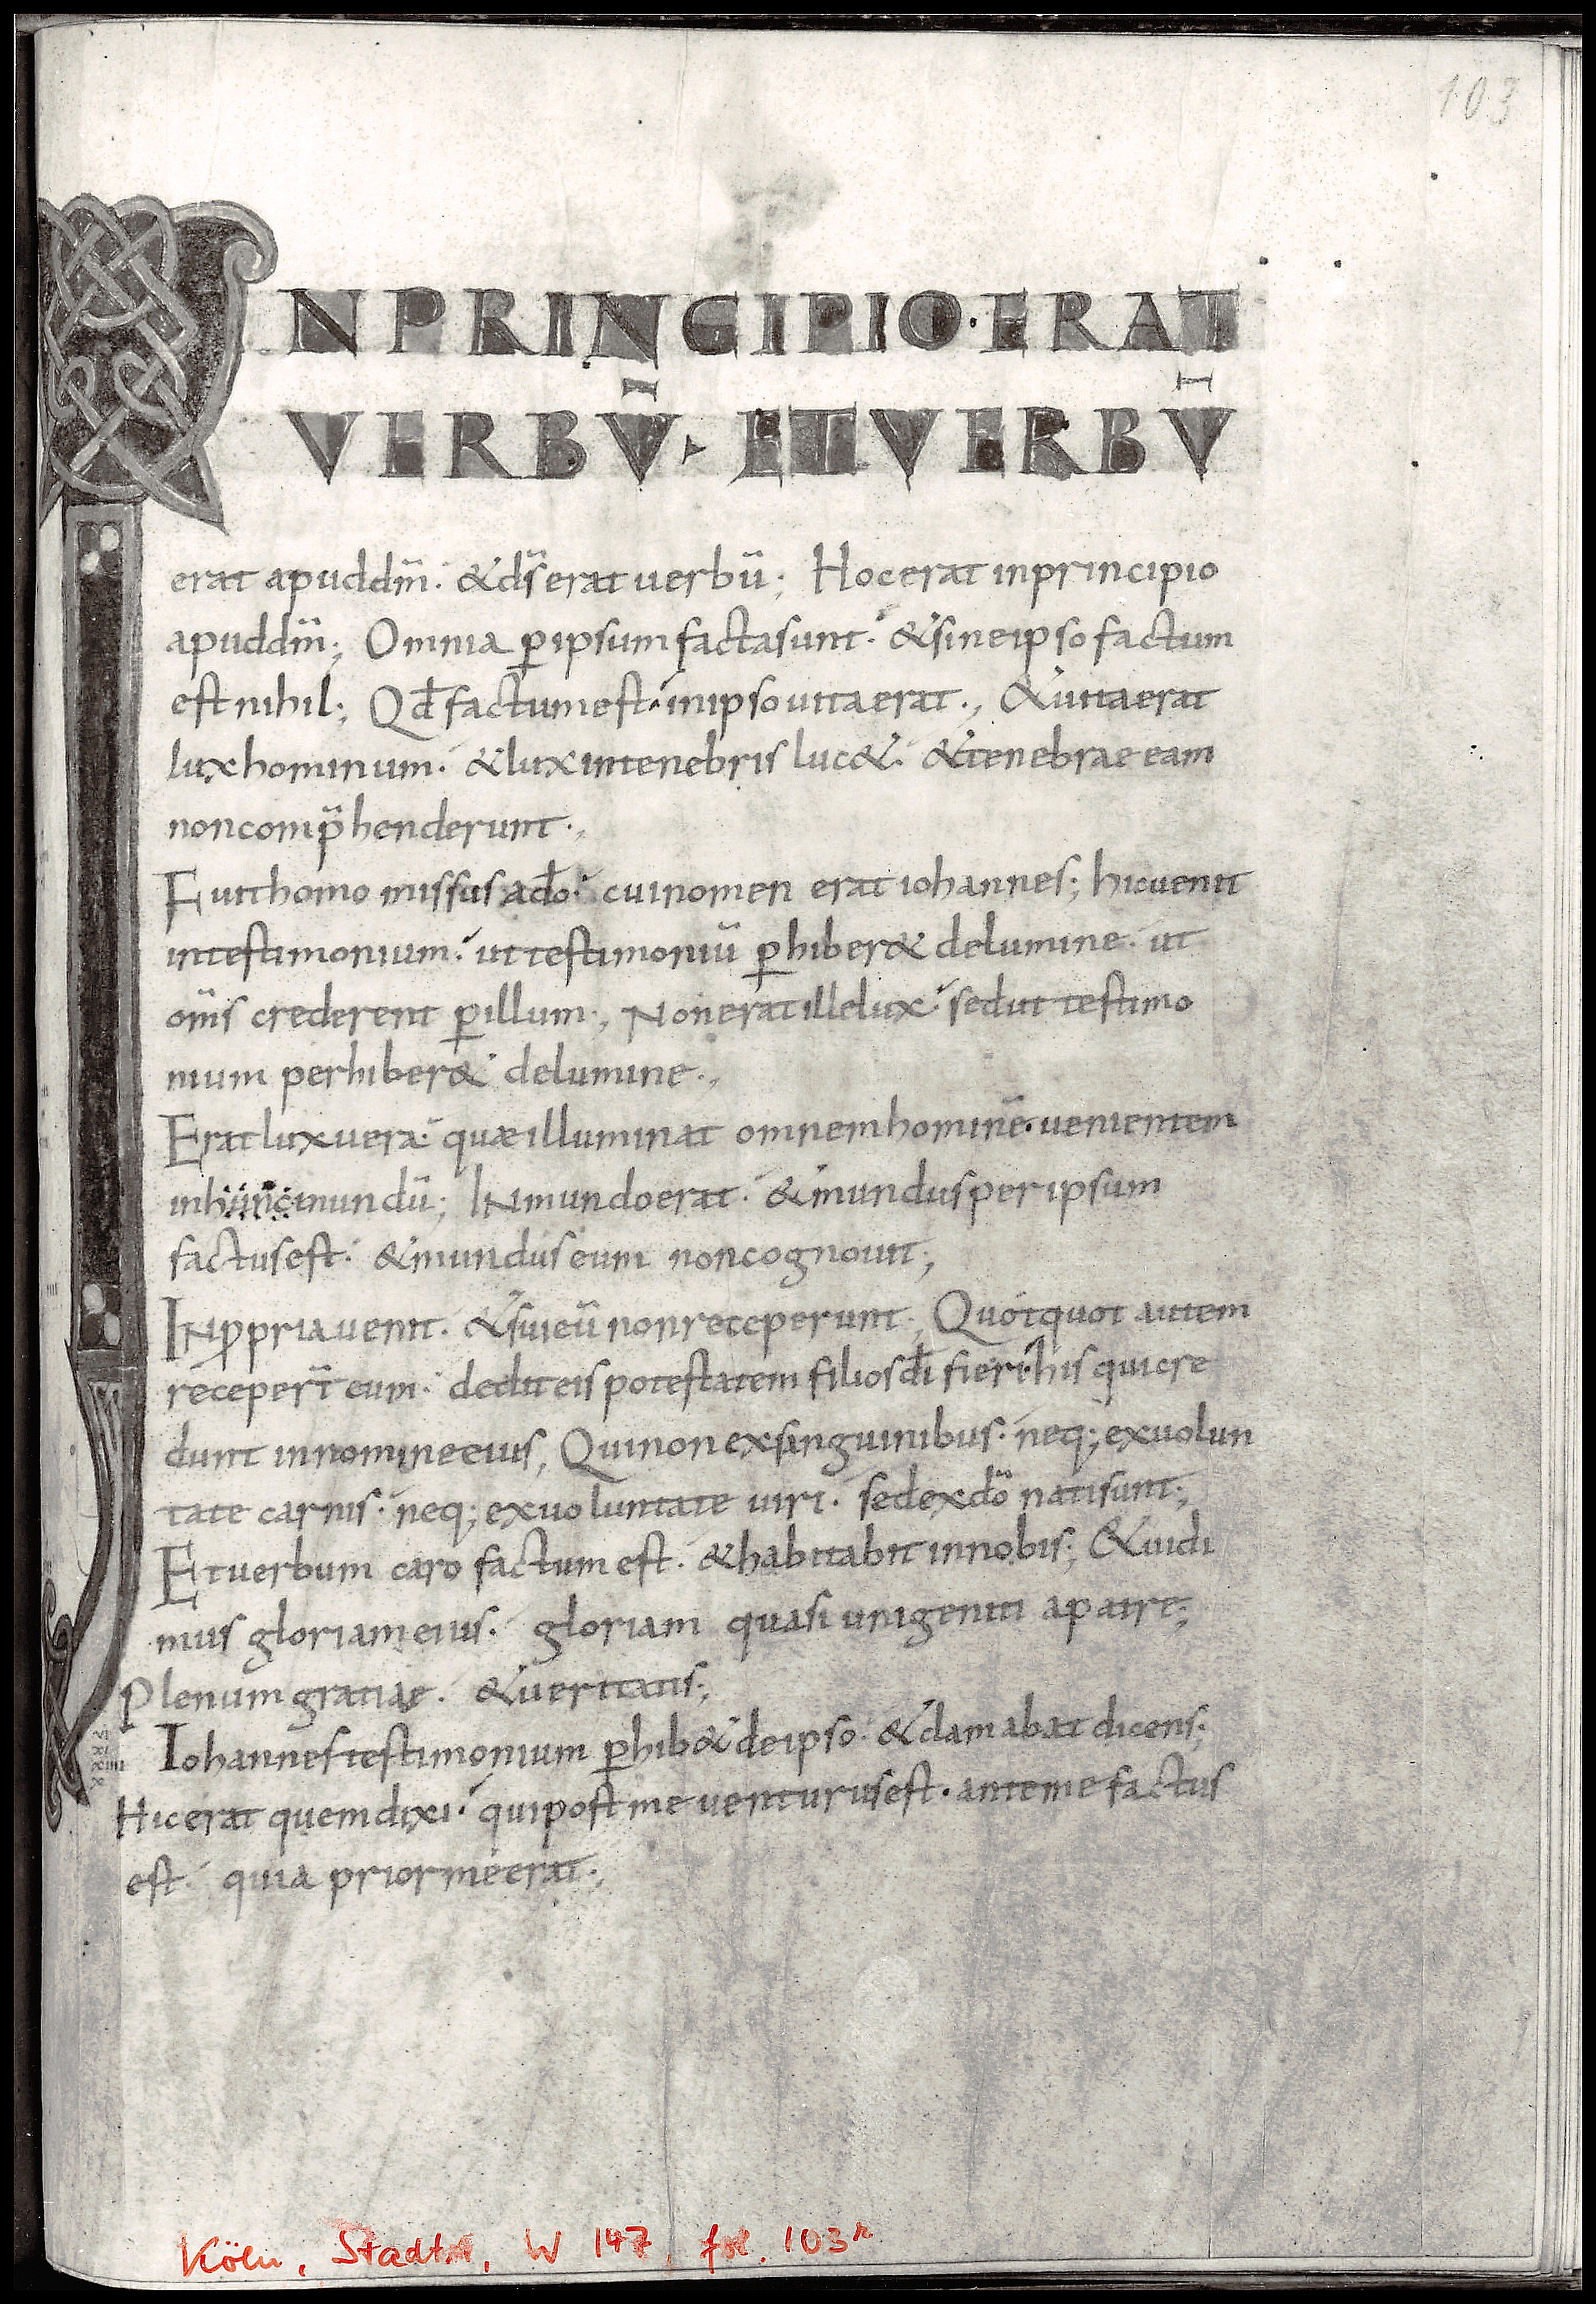 103
INPRINCIPIO·ERAT
VERBŪ· ETVERBŪ
erat apuddm̄. &ds̄ erat uerbū; Hocerat inprincipio
apuddm̄; Omnia ꝑipsum factasunt. &sineipso factum
est nihil; Qđ factumest· inipsouitaerat., &uitaerat
lux hominum. &lux intenebris luc&. &tenebrae eam
noncomp̄henderunt.,
Fuithomo missus ado̅. cuinomen erat iohannes; hicuenit
intestimonium. ut testimoniū ꝑhiber& delumine. ut
om̄s crederent ꝑillum., Nonerat illelux. sedut testimo
nium perhiber& delumine.,
Erat lux uera. quae illuminat omnemhominē. uenientem
inhuncmundū; INmundoerat. &mundus per ipsum
factusest. &mundus eum noncognouit;
INꝓpria uenit. &suieū nonreceperunt; Quotquot autem
receper̄t eum. dediteis potestatem filiosdī fieri· his quicre
dunt innomineeius, Quinon exsanguinibus. neq; exuolun
tate carnis. neq; exuoluntate uiri. sedexdō natisunt;
Etuerbum caro factum est. &habitabit innobis; &uidi
mus gloriameius. gloriam quasi unigeniti apatre;
Plenum gratiae. &ueritatis;
Iohannestestimonium ꝑhib& deipso. &clamabat dicens;
Hicerat quemdixi. quipost me uenturusest. anteme factus
est. quia priormeerat;
Köln, Stadta, W 147, fol. 103r